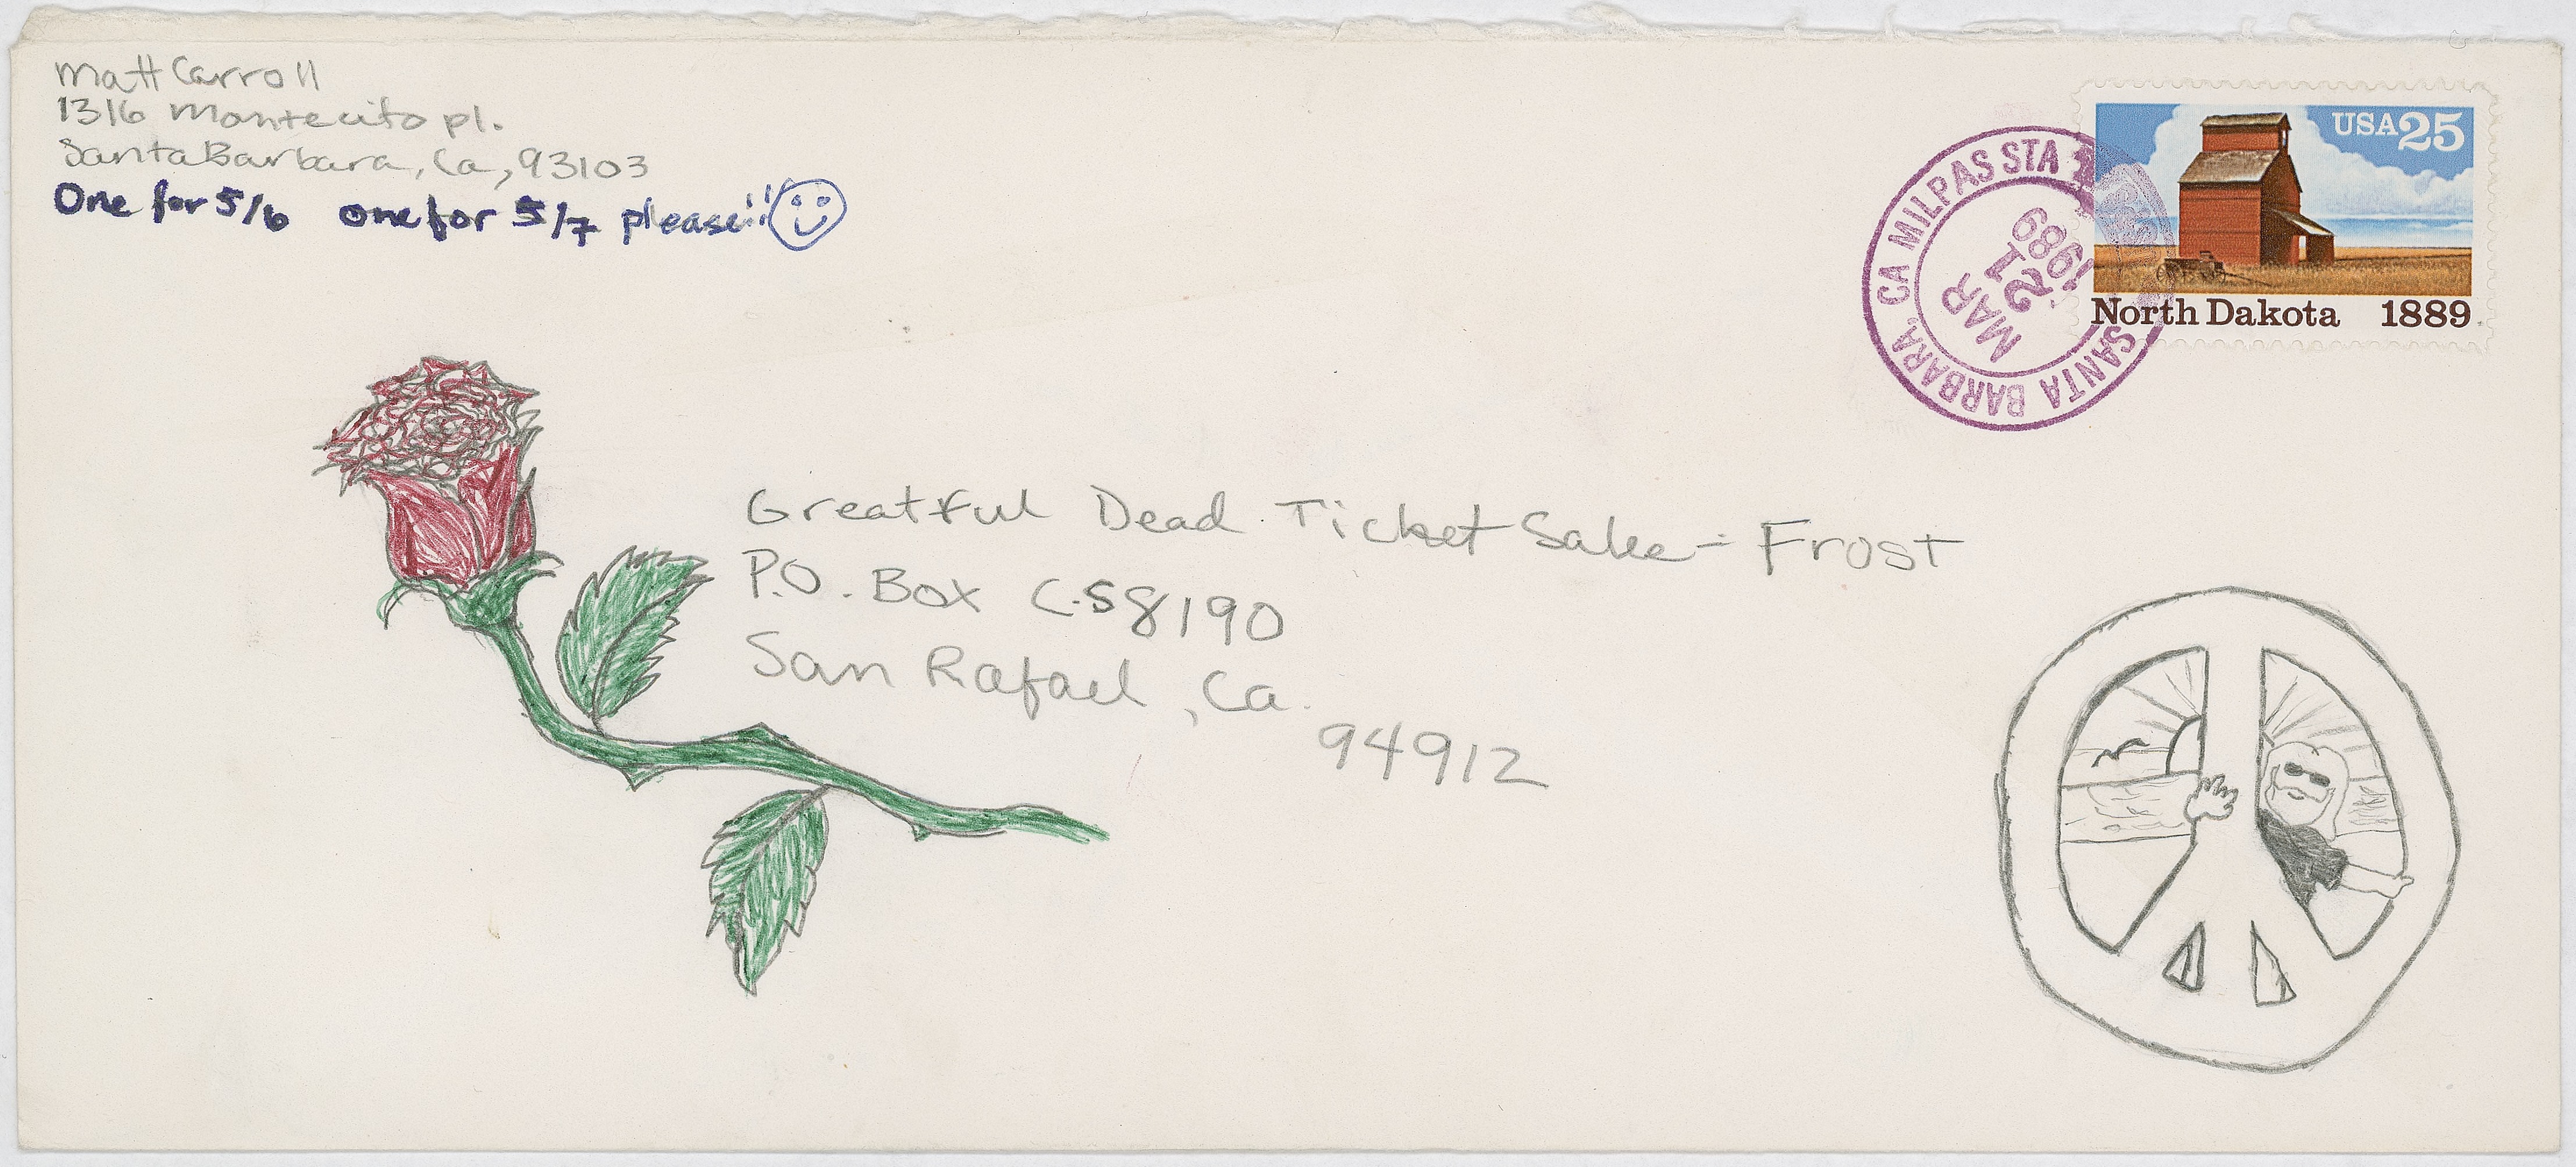 Matt Carroll
1316 Montecito pl.
Santa Barbara, Ca, 93103
One for 5/6 one for 5/7 please!!!
USA25
North Dakota 1889
SANTA BARBARA, CA MILPAS STA
MAR
21
1989
Greatful Dead Ticket Sale - Frost
P.O. Box CS8190
San Rafael, Ca.
94912